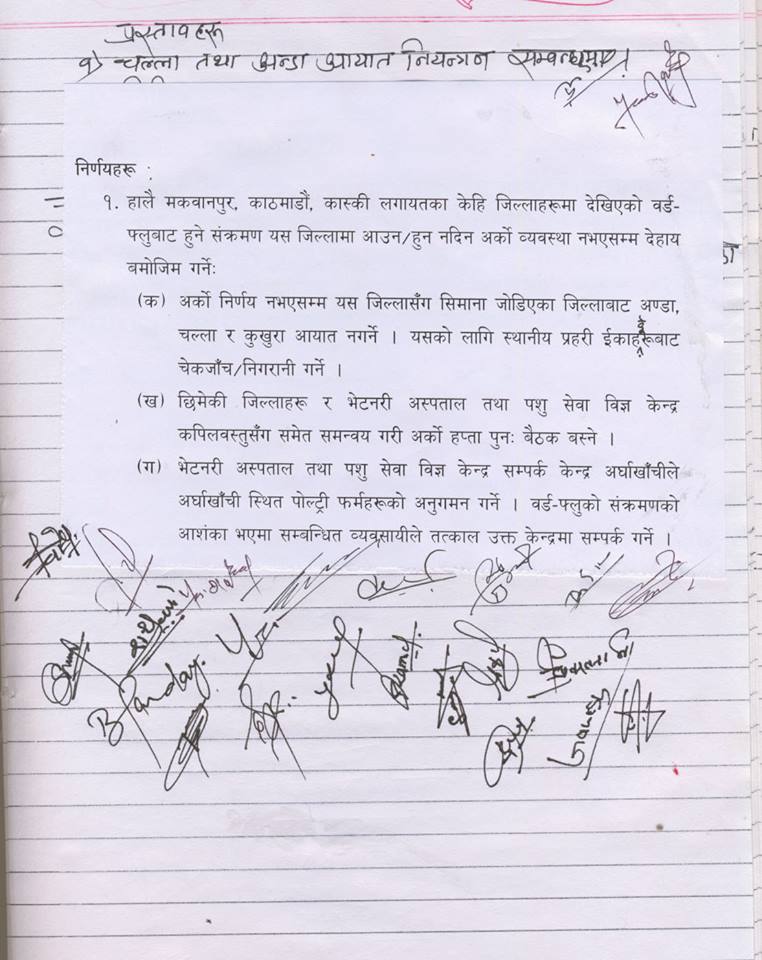 प्रस्तावहरू
१) चल्ला तथा अन्डा आयात नियन्त्रण सम्बन्धमा ।
निर्णयहरू :
१. हालै मकवानपुर, काठमाडौं, कास्की लगायतका केहि जिल्लाहरूमा देखिएको वर्ड-
फ्लुबाट हुने संक्रमण यस जिल्लामा आउन/हुन नदिन अर्को व्यवस्था नभएसम्म देहाय
बमोजिम गर्नेः
(क) अर्को निर्णय नभएसम्म यस जिल्लासँग सिमाना जोडिएका जिल्लाबाट अण्डा,
चल्ला र कुखुरा आयात नगर्ने । यसको लागि स्थानीय प्रहरी ईकाहरूबाट
चेकजाँच/निगरानी गर्ने ।
(ख) छिमेकी जिल्लाहरू र भेटनरी अस्पताल तथा पशु सेवा विज्ञ केन्द्र
कपिलवस्तुसँग समेत समन्वय गरी अर्को हप्ता पुनः बैठक बस्ने ।
(ग) भेटनरी अस्पताल तथा पशु सेवा विज्ञ केन्द्र सम्पर्क केन्द्र अर्घाखाँचीले
अर्घाखाँची स्थित पोल्ट्री फर्महरूको अनुगमन गर्ने । वर्ड-फ्लुको संक्रमणको
आशंका भएमा सम्बन्धित व्यवसायीले तत्काल उक्त केन्द्रमा सम्पर्क गर्ने ।